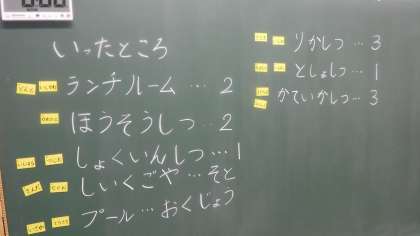 いったところ
ランチルーム … 2
ほうそうしつ … 2
しょくいんしつ … 1
しいくごや … そと
プール … おくじょう
りかしつ … 3
としょしつ … 1
かていかしつ … 3